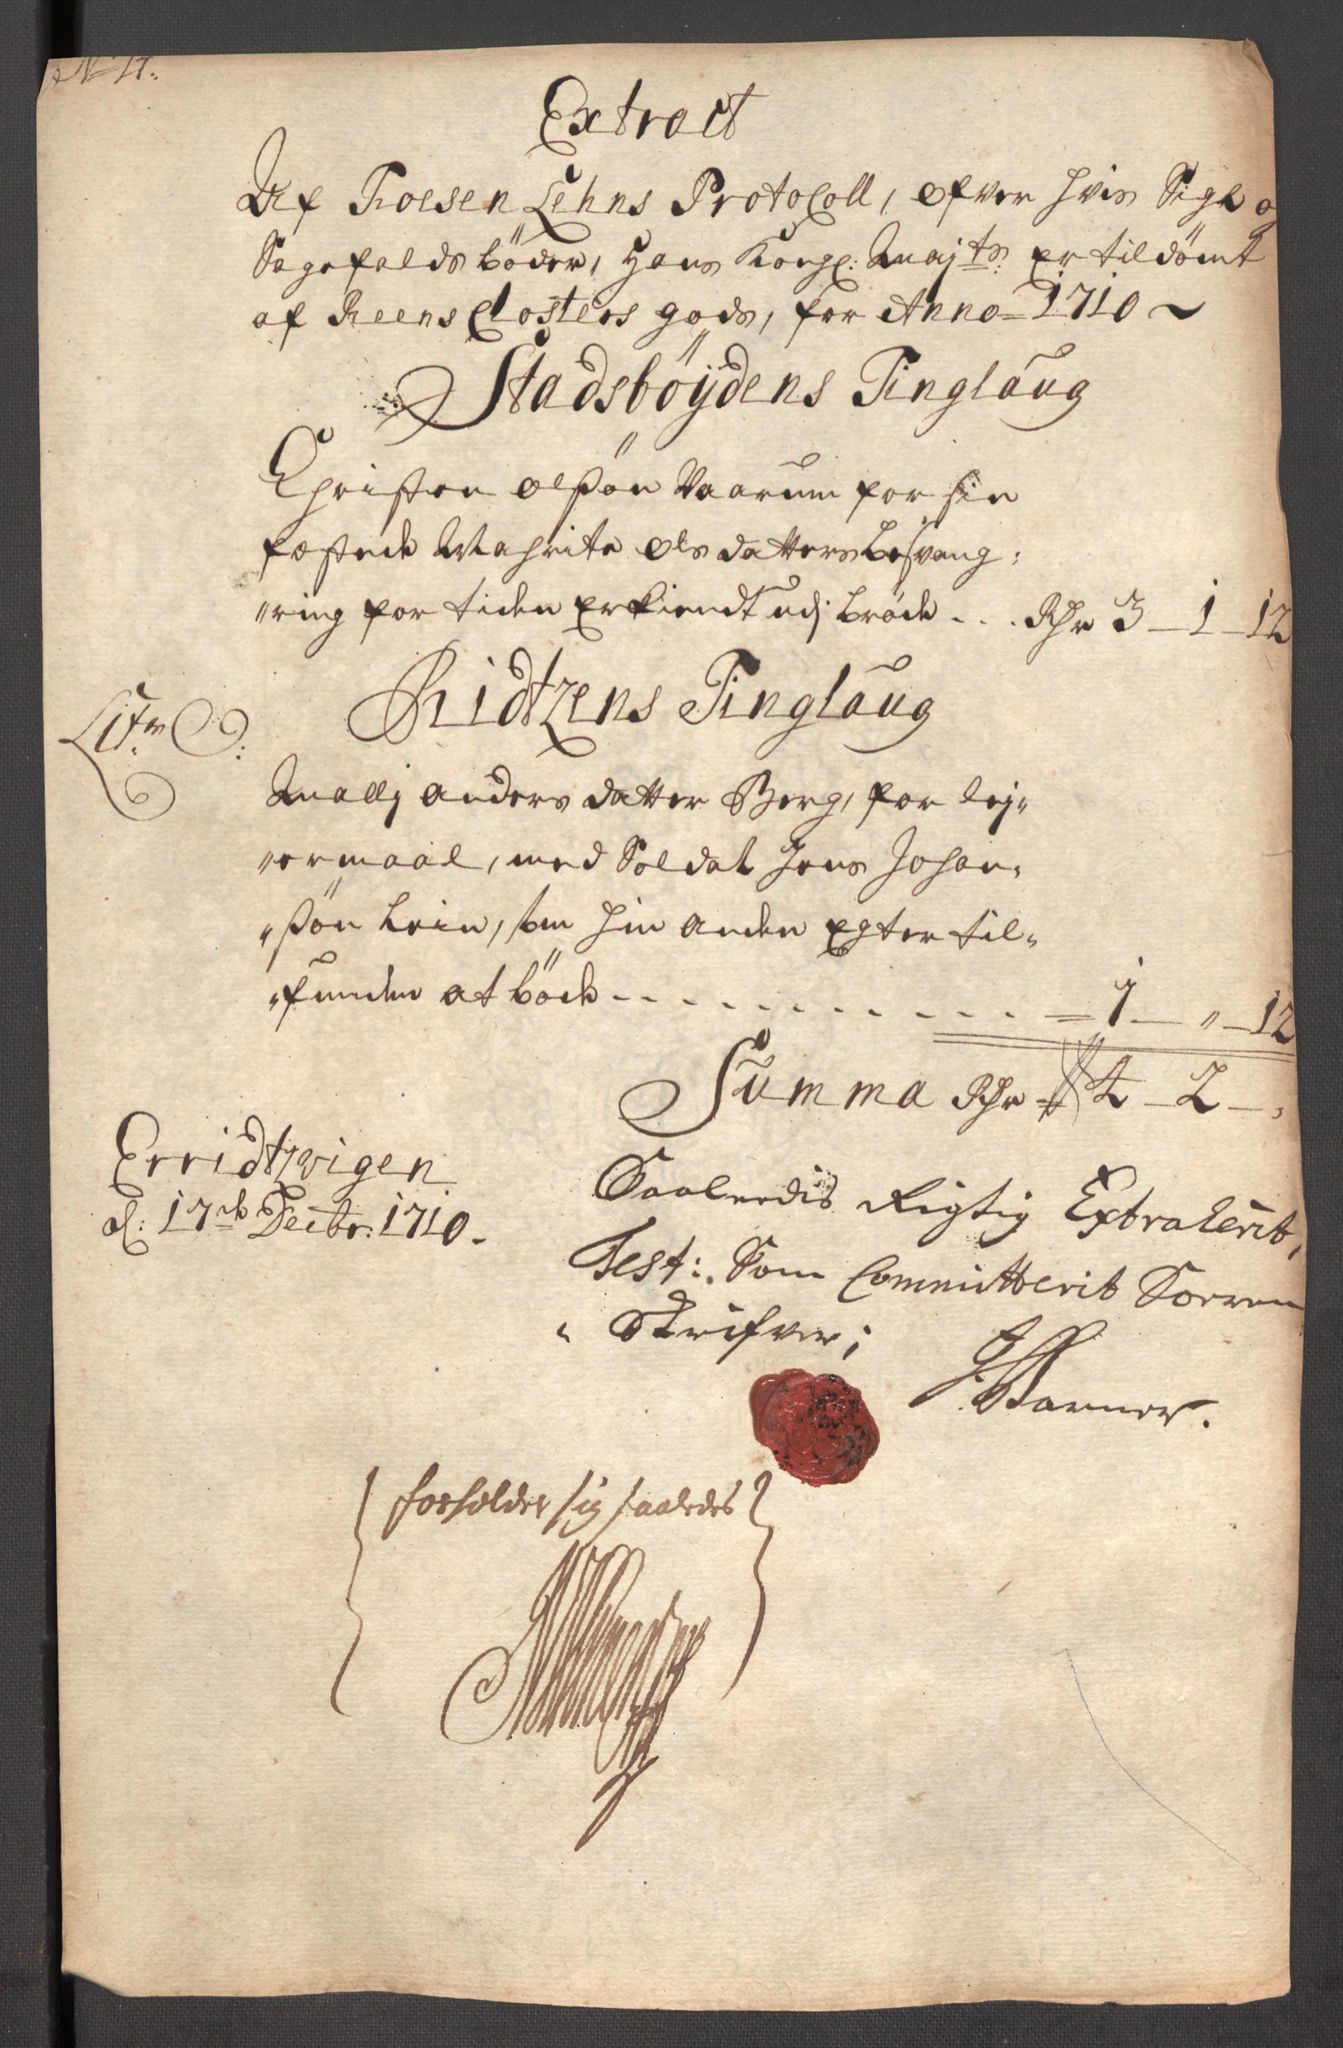 N 17.
Extract
Af Fosen Lehns Protocoll, ofver hvis Sigt og
Sagefalds bøder, Hans Kongl: Maj:ts er tildömt
af Reens Closters gods, for Anno 1710 ~
Stadsböÿdens Tinglaug
Christen olßøn Vaarum for sin
fæstede Mahrite ols datters besvang:
"ring for tiden erkiendt udj bröde ... Rdr 3 - 1 - 12
Ridtzens Tinglaug
Litr O:
Mallj anders datter Berg, for lej"
"ermaal, med Soldat Jens Johan"
"ßøn Lein, som hin anden egter til"
"funden at böde - - - - - - - - - - = 1 - " - 12
Summa Rdr 4 - 2 - "
Erridtzvigen
d: 17de Decbr: 1710.
Saaleedis Rigtig Extraherit,
Test: Som Committerit Sorren
" Skrifver;
J. Warner.
forholder sig saaledes